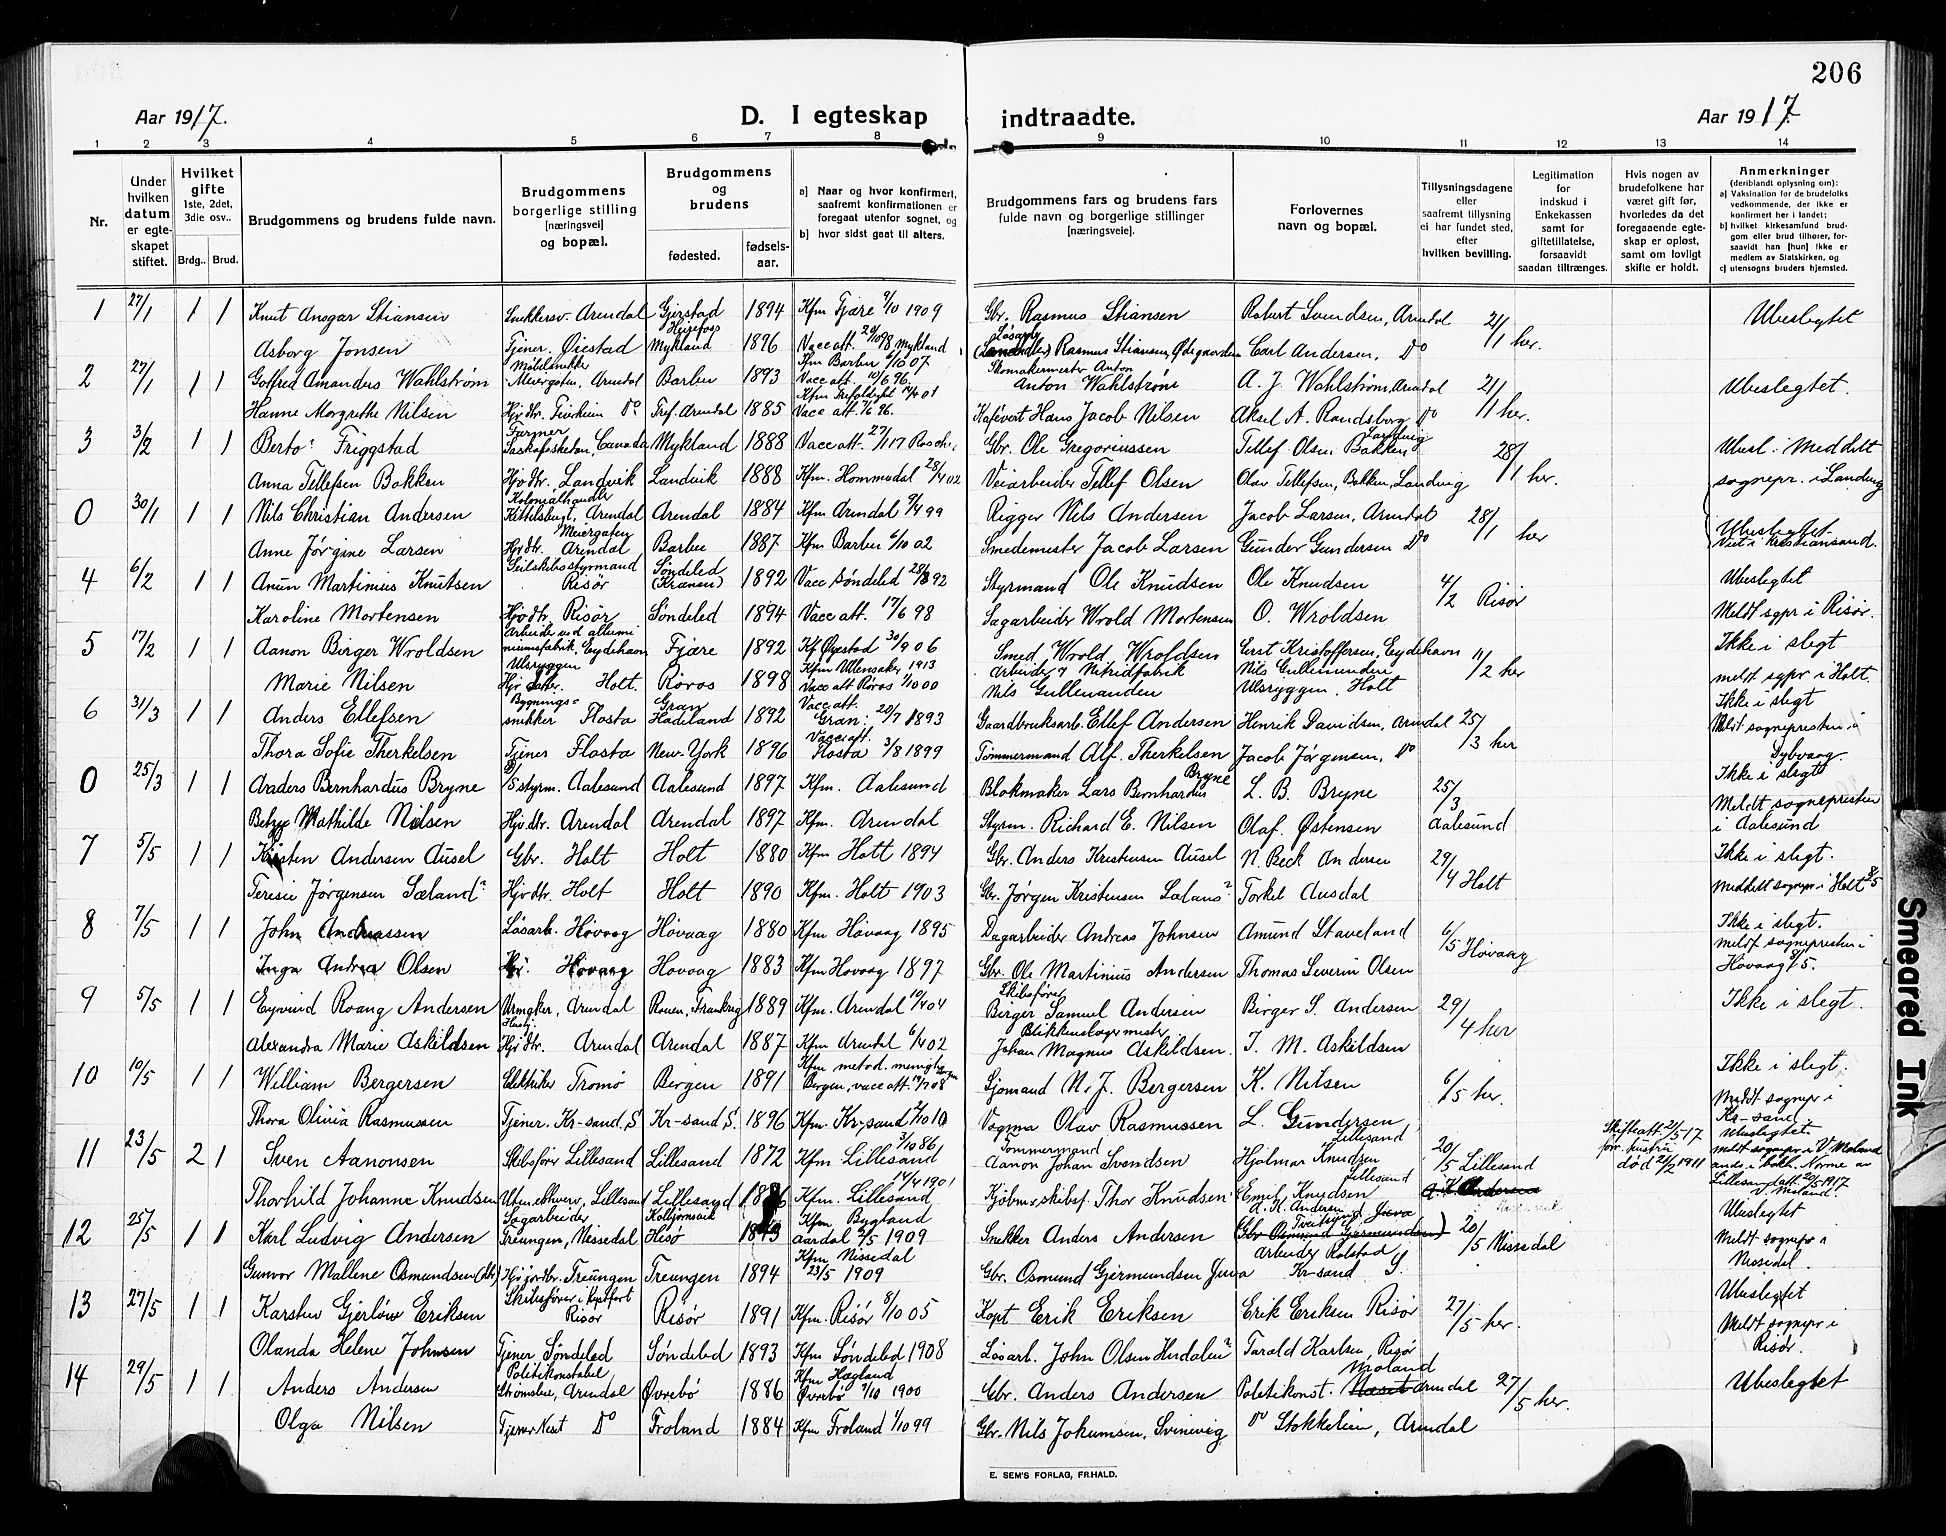 206
Aar 1917.
D. I egteskap
indtraadte.
Aar 1917.
1 2 3 4 5 6 7 8 9 10 11 12 13 14
Nr.
Under hvilken datum er egte-skapet stiftet.
Hvilket gifte 1ste, 2det, 3die osv..
Brdg.. Brud.
Brudgommens og brudens fulde navn.
Brudgommens borgerlige stilling [næringsvei] og bopæl.
Brudgommens og brudens
fødested.
fødsels-aar.
a) Naar og hvor konfirmert, saafremt konfirmationen er foregaat utenfor sognet, og
b) hvor sidst gaat til alters.
Brudgommens fars og brudens fars fulde navn og borgerlige stillinger [næringsveie].
Forlovernes navn og bopæl.
Tillysningsdagene eller saafremt tillysning ei har fundet sted, efter hvilken bevilling.
Legitimation for indskud i Enkekassen samt for giftetillatelse, forsaavidt saadan tiltrænges.
Hvis nogen av brudefolkene har været gift før, hvorledes da det foregaaende egte-skap er opløst, samt om lovligt skifte er holdt.
Anmerkninger (deriblandt oplysning om):
a) Vaksination for de brudefolks vedkommende, der ikke er konfirmert her i landet;
b) hvilket kirkesamfund brud-gom eller brud tilhører, for-saavidt han [hun] ikke er medlem av Statskirken, og
c) utensogns bruders hjemsted.
1 27/1 1 1 Knut Ansgar Stiansen Snekkersv. Arendal Gjerstad 1894 Kfm Fjære 9/10 1909 Gbr. Rasmus Stiansen Robert Svendsen, Arendal 21/1 her. Ubeslegtet
Asborg Jonsen Tjener. Øiestad Mykland 1896 Vacc att. 20/10 98 Mykland Rasmus Stiansen, Ødegaarden Carl Andersen, Do
2 27/1 1 1 Gotfred Amandus Wahlstrøm Møbelsnekker Meiergaten, Arendal Barbu 1893 Kfm Barbu 6/10 07 Vacc att. 10/6 96. Skomakermester Anton Anton Wahlstrøm A. J. Wahlstrøm, Arendal 21/1 her. Ubeslegtet.
Hanne Margrethe Nilsen Hjv dtr. Do Tref. Arendal 1885 Vacc att. Hans Jacob Nilsen Aksel A. Randsborg Do
3 3/2 1 1 Berto? Friggstad Farmer Canada Mykland 1888 Vacc att. 27/1 17 Gbr. Ole Gregoriussen Tellef Olsen Bakken Landvig 28/1 her. Ubesl. Meddelt
Anna Tellefsen Bakken Hjv dtr. Landvik Landvik 1888 Kfm. Hommedal 28/9 02 Veiarbeider Tellef Olsen Olav Tellefsen, Bakken, Landvig sognepr. i Landvig
0 30/1 1 1 Nils Christian Andersen Kolonialhandler Kittelsbugt, Arendal Arendal 1884 Kfm Arendal 9/4 99 Rigger Nils Andersen Jacob Larsen, Arendal 28/1 her Ubeslegtet.
Anne Jørgine Larsen Meiergaten Hjv dtr. Arendal Barbu 1887 Kfm Barbu 6/10 02 Smedemester Jacob Larsen Gunder Gundersen Do Viet i Kristiansand.
4 6/2 1 1 Anun Martinius Knutsen Seilskibsstyrmand Risør Søndeled (Kranen) 1892 Vacc Søndeled 28/8 92 Styrmand Ole Knudsen Ole Knudsen 4/2 Risør Ubeslegtet
Karoline Mortensen Hjv dtr. Risør Søndeled 1894 Vacc att. 17/6 98 Sagarbeider Wrold Mortensen O. Wroldsen Meldt sgpr i Risør.
5 17/2 1 1 Aanon Birger Wroldsen Arbeider ved allumi niumsfabrik, Eydehavn Fjære 1892 Kf Øyestad 30/9 06 Smed Wrold Wroldsen Gerst Kristoffersen, Eydehavn 11/2 her Ikke i slegt
Marie Nilsen Ulsryggen Hjv datter. Holt. Røros 1898 Kfm. Ullensaker 1913 Vacc att Røros 1/10 00 Arbeider v Nitridfabrik Nils Gullevanden Nils Gullevanden Ulsryggen. Holt meldt sgpr i Holt.
6 31/3 1 1 Anders Ellefsen Bygnings= snikker Flosta Gran Hadeland 1892 Vacc att. Gran: 20/7 1893 Gaardbruksarb. Ellef Andersen Henrik Davidsen, Arendal 25/3 her Ikke i slegt
Thora Sofie Therkelsen Tjener Flosta New-York 1896 Vacc att. Flosta 3/8 1899 Tømmermand Alf. Therkelsen Jacob Jørgensen, Do Meldt sognepresten i
0 25/3 1 1 Anders Bernhardus Bryne styrm. Aalesund Aalesund 1897 Kfm. Aalesund Blokmaker Lars Bernhardus Bryne L. B. Bryne 25/3 Aalesund Ikke i slegt
Betzy Mathilde Nilsen Hjv dtr. Arendal Arendal 1897 Kfm. Arendal Styrm. Richard E. Nilsen Olaf. Østensen Meldt sognepresten i Aalesund
7 5/5 1 1 Kristen Andersen Ausel Gbr. Holt Holt 1880 Kfm Holt 1894 Gbr. Anders Kristensen Ausel N. Beck Andersen 29/4 Holt Ikke i slegt.
Teresie Jørgensen Sæland? Hjv dtr. Holt Holt 1890 Kfm. Holt 1903 Gbr. Jørgen Kristensen Torkel Ausdal Meddelt sognepr. i Holt 8/5
8 7/5 1 1 John Andreassen Løsarb. Høvaag Høvaag 1880 Kfm Høvaag 1895 Dagarbeider Andreas Johnsen Amund Staveland 6/5 Høvaag Ikke i slegt.
Inga Andrea Olsen Høvaag Høvaag 1883 Kfm Høvaag 1897 Gbr. Ole Martinius Andersen Thomas Severin Olsen meldt sognepresten i Høvaag 8/5.
9 5/5 1 1 Eyvind Roang Andersen Urmaker, Arendal Rouen, Frankrig 1889 Kfm. Arendal 10/4 04 Skibsfører Birger Samuel Andersen Birger S. Andersen 29/4 her Ikke i slegt.
Alexandra Marie Askildsen Hjv dtr. Arendal Arendal 1887 Kfm Arendal 6/4 02 Blikkenslagermester Johan Magnus Askildsen. J. M. Askildsen
10 10/5 1 1 William Bergersen Elektriker Tromø Bergen 1891 Kfm metod. menigh. Bergen, vacc att. Sjømand N. J. Bergersen K. Nilsen 6/5 her. Ikke i slegt.
Thora Olivia Rasmussen Tjener. Kr-sand. S Kr-sand S. 1896 Kfm. Kr-sand 2/10 10 Vogma Olav Rasmussen L. Gundersen Meldt sognepr i Kr-sand.
11 23/5 2 1 Sven Aanonsen Skibsfører Lillesand Lillesand 1872 Kfm Lillesand 3/10 86 Tømmermand Aanon Johan Svendsen Hjalmar Knudsen Lillesand 20/5 Lillesand Skifteatt 21/5-17 forr. hustru død 21/2 1911 Ubeslegtet. meldt sognepr i V. Moland
Thorhild Johanne Knudsen Uten erhverv, Lillesand Lillesand Kfm. Lillesand 14/4 1901 Kjøbm., skibsf. Thor Knudsen. Emil Knudsen Lillesand
12 25/5 1 1 Karl Ludvig Andersen Sagarbeider Treungen, Nissedal Kolbjørnsvik Hisø Kfm. Bygland Aardal 2/5 1909 Snekker Anders Andersen A. K. Andersen 20/5 Nissedal Ubeslegtet
Gunvor Mallene Osmundsen Treungen Treungen 1894 Kfm Nissedal 23/5 1909 Gbr. Osmund Gjermundsen Juva Arbeider Kr-sand S. Meldt sognepr i Nissedal.
13 27/5 1 1 Karsten Gjerløw Eriksen Skibsfører Risør Risør 1891 Kfm. Risør 8/10 05 Kapt Erik Eriksen Erik Eriksen Risør 27/5 her. Ubeslegtet
Olanda Helene Johnsen Tjener Søndeled Søndeled 1893 Kfm Søndeled 1908 Løsarb. John Olsen Tarald Karlsen, Risør Meldt sognepr i Risør.
14 29/5 1 1 Anders Andersen Politikonstabel Strømsbu, Arendal Øvrebø 1886 Kfm Hægland Øvrebø 7/10 1900 Gbr. Anders Andersen Politikonst. Moland Arendal 27/5 her. Ubeslegtet
Olga Nilsen Tjener Do Froland 1884 Kfm Froland 1/10 99 Gbr. Nils Jokumsen, Svinevig Do Stokkelien, Arendal
E. SEM'S FORLAG, FR.HALD.
Smeared Ink